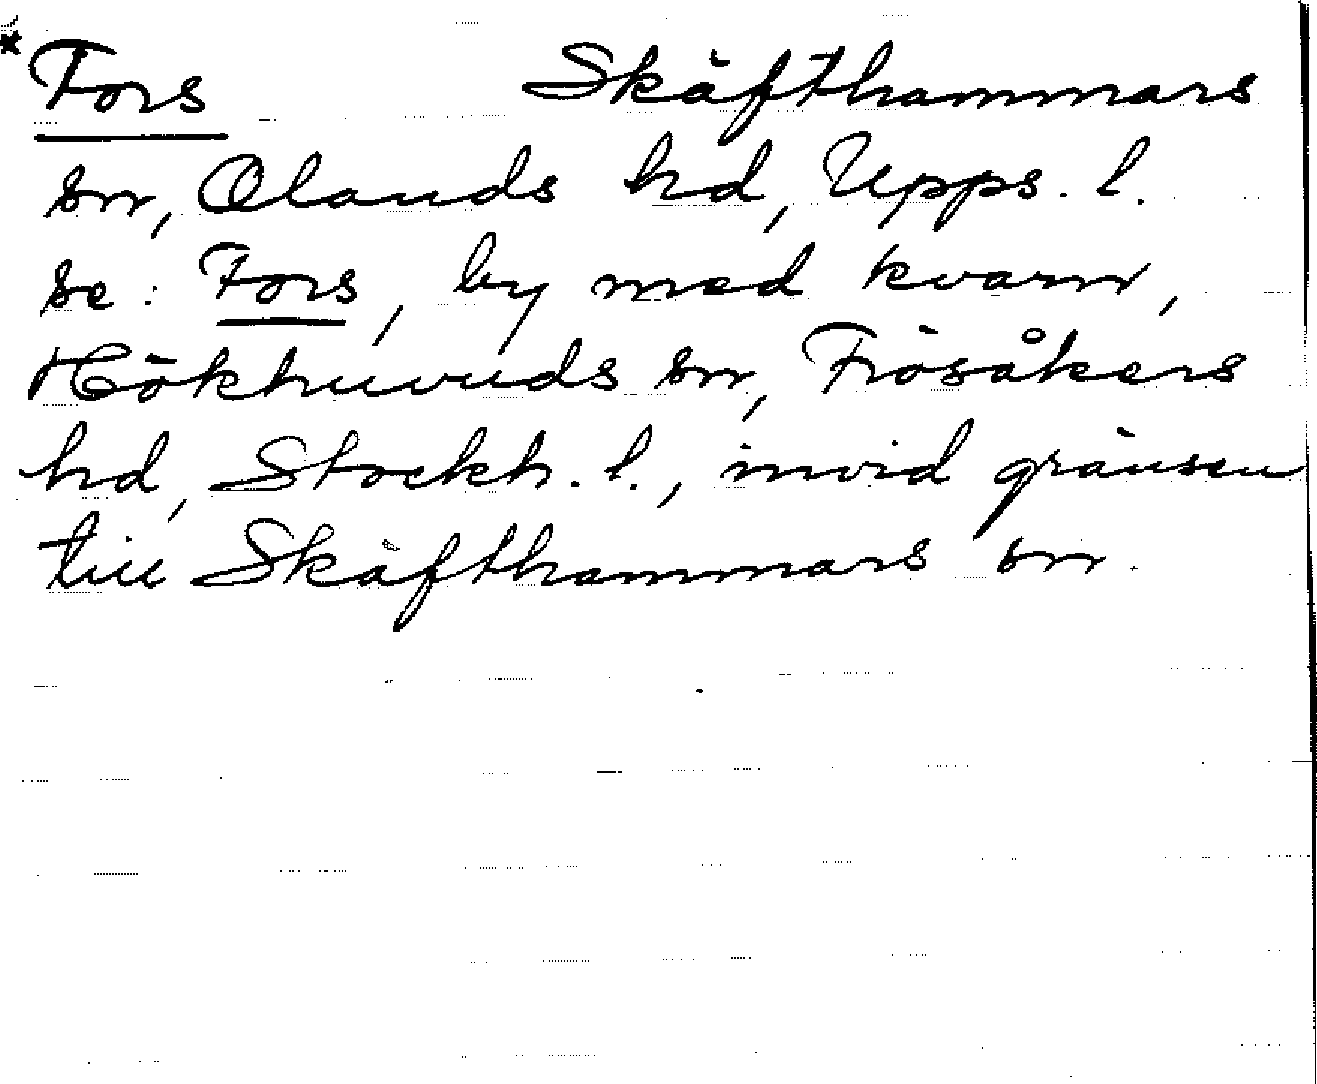 * Fors Skäfthammars
sn, Olands hd, Upps. l.
se: Fors, by med kvarn,
Hökhuvuds sn, Frösåkers
hd, Stockh. l., invid gränsen
till Skäfthammars sn.